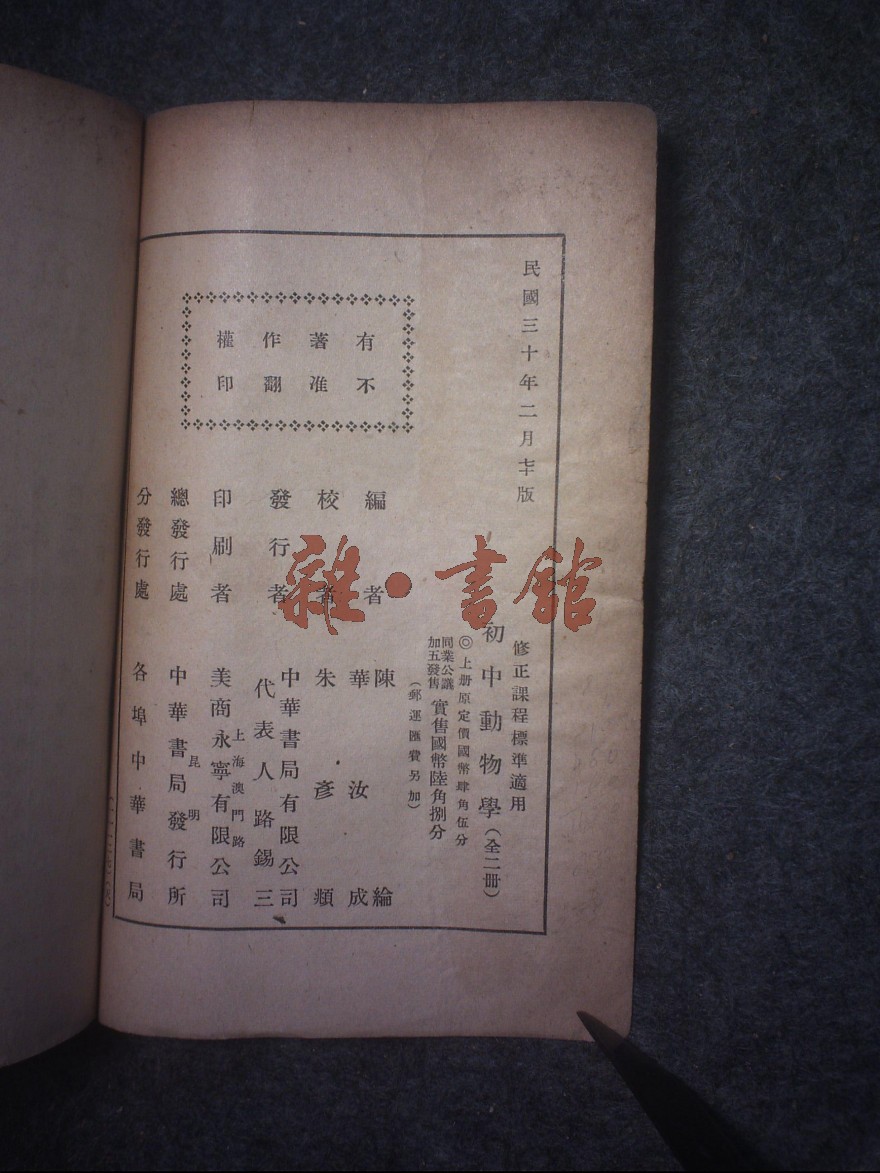 民國三十年二月十七版
修正課程標準適用
初中動物學(全二冊)
◎上册原定價國幣肆角伍分
同業公議
加五發售
實售國幣陸角捌分
(郵運匯費另加)
有著作權
不准翻印
編者 陳綸
華汝成
校者 朱彥頫
發行者 中華書局有限公司
代表人路錫三
印刷者 上海澳門路
美商永寧有限公司
總發行處 昆明
中華書局發行所
分發行處 各埠中華書局
雜·書館